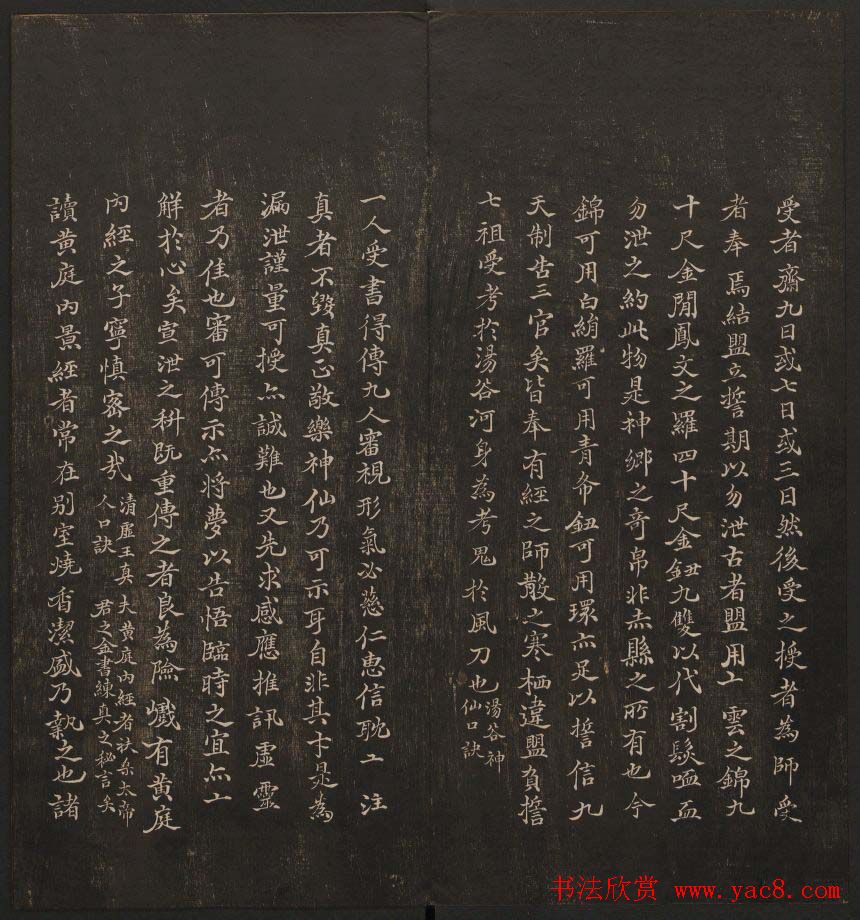 受者齋九日或七日或三日然後受之授者為師受
者奉焉結盟立誓期以勿泄古者盟用 雲之錦九
十尺金開鳳文之羅四十尺金鈕九雙以代割髮啑血
勿泄之約此物是神鄉之奇帛非赤縣之所有也今
錦可用白絹羅可用青布鈕可用環亦足以誓信九
天制告三官矣皆奉有經之師散之寒栖違盟負誓
七祖受考於湯谷河身為考鬼於風刀也湯谷神
仙口訣
一人受書得傳九人審視形氣必慈仁惠信耽 注
真者不毀真正敬樂神仙乃可示耳自非其才是為
漏泄謹量可授亦誠難也又先求感應推訊虛靈
者乃佳也審可傳示亦將夢以告悟臨時之宜亦
解於心矣宣泄之科既重傳之者良為險巇有黃庭
內經之子寧慎密之哉清虛王真
人口訣
夫黃庭內經者扶桑太帝
君之金書練真之秘言矣
讀黃庭內景經者常在別室燒香潔盛乃執之也諸
书法欣赏 www.yac8.com